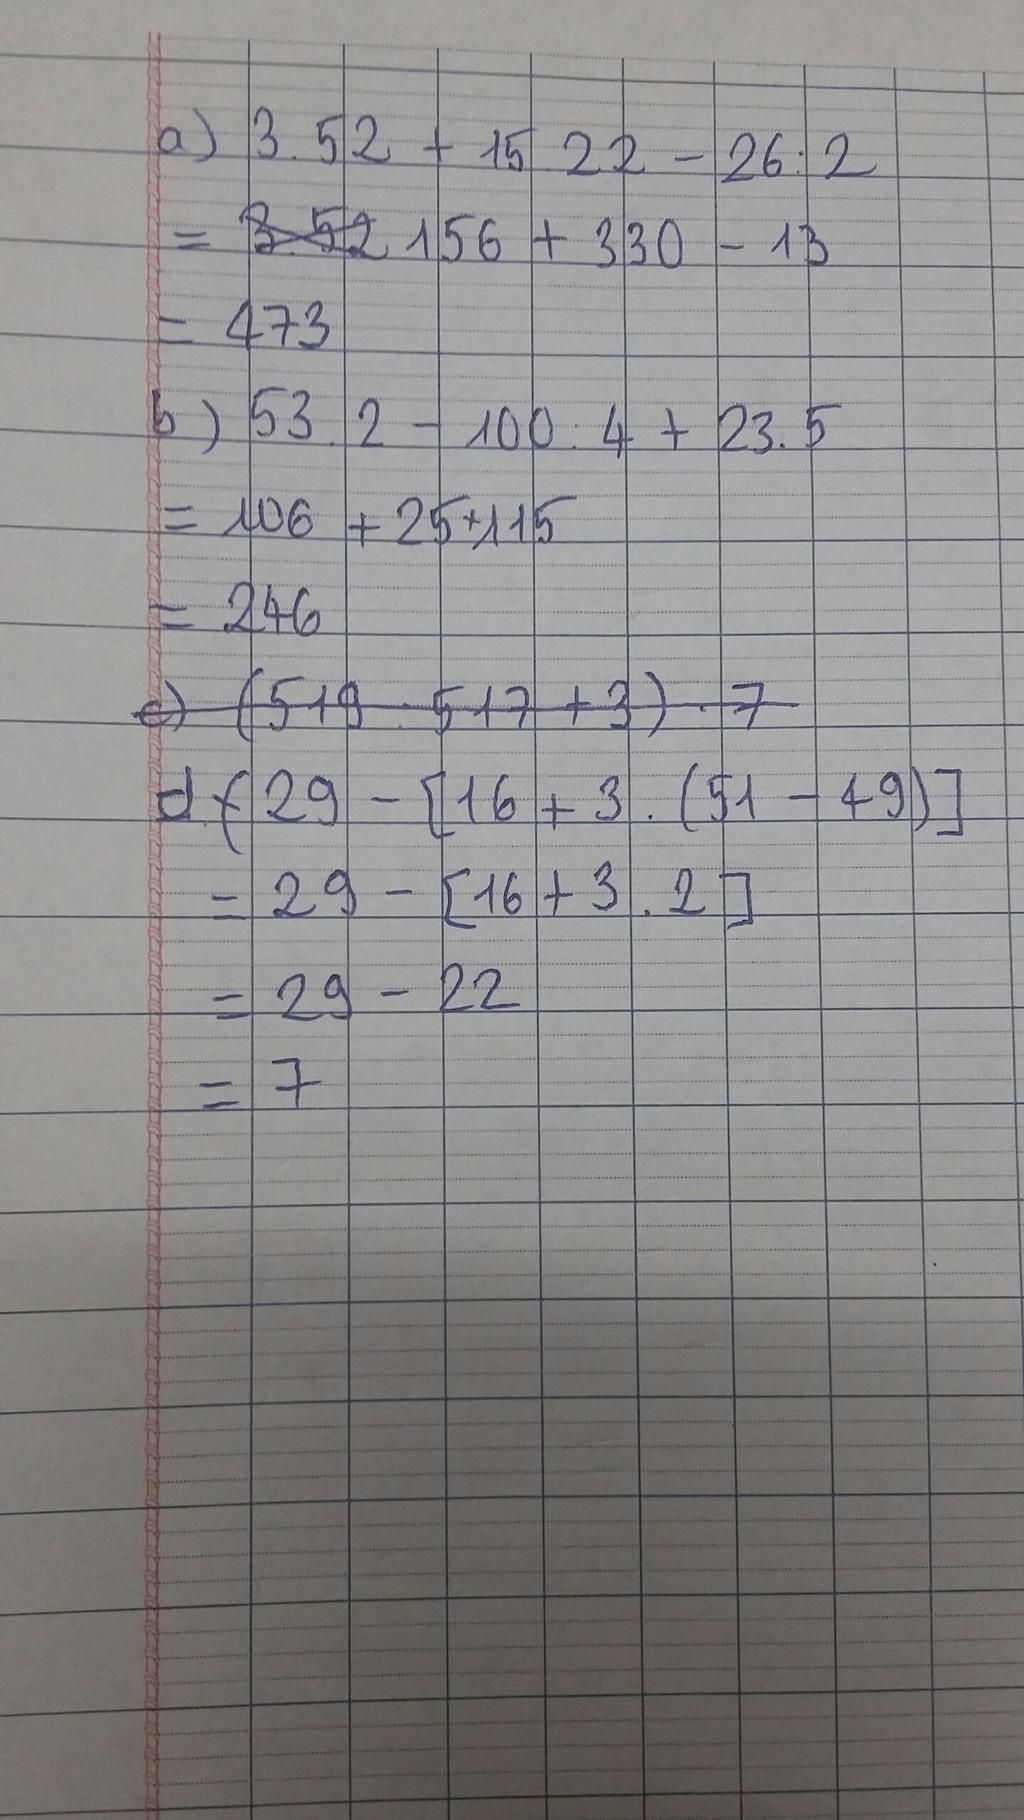 a) 3.52 + 15 22 - 26:2
= 3.52 156 + 330 - 13
= 473
b) 53.2 - 100:4 + 23.5
= 106 + 25 + 115
= 246
c) (519 : 517 + 3) . 7
d.( 29 - [16 + 3 . (51 - 49)]
= 29 - [16 + 3 . 2]
= 29 - 22
= 7